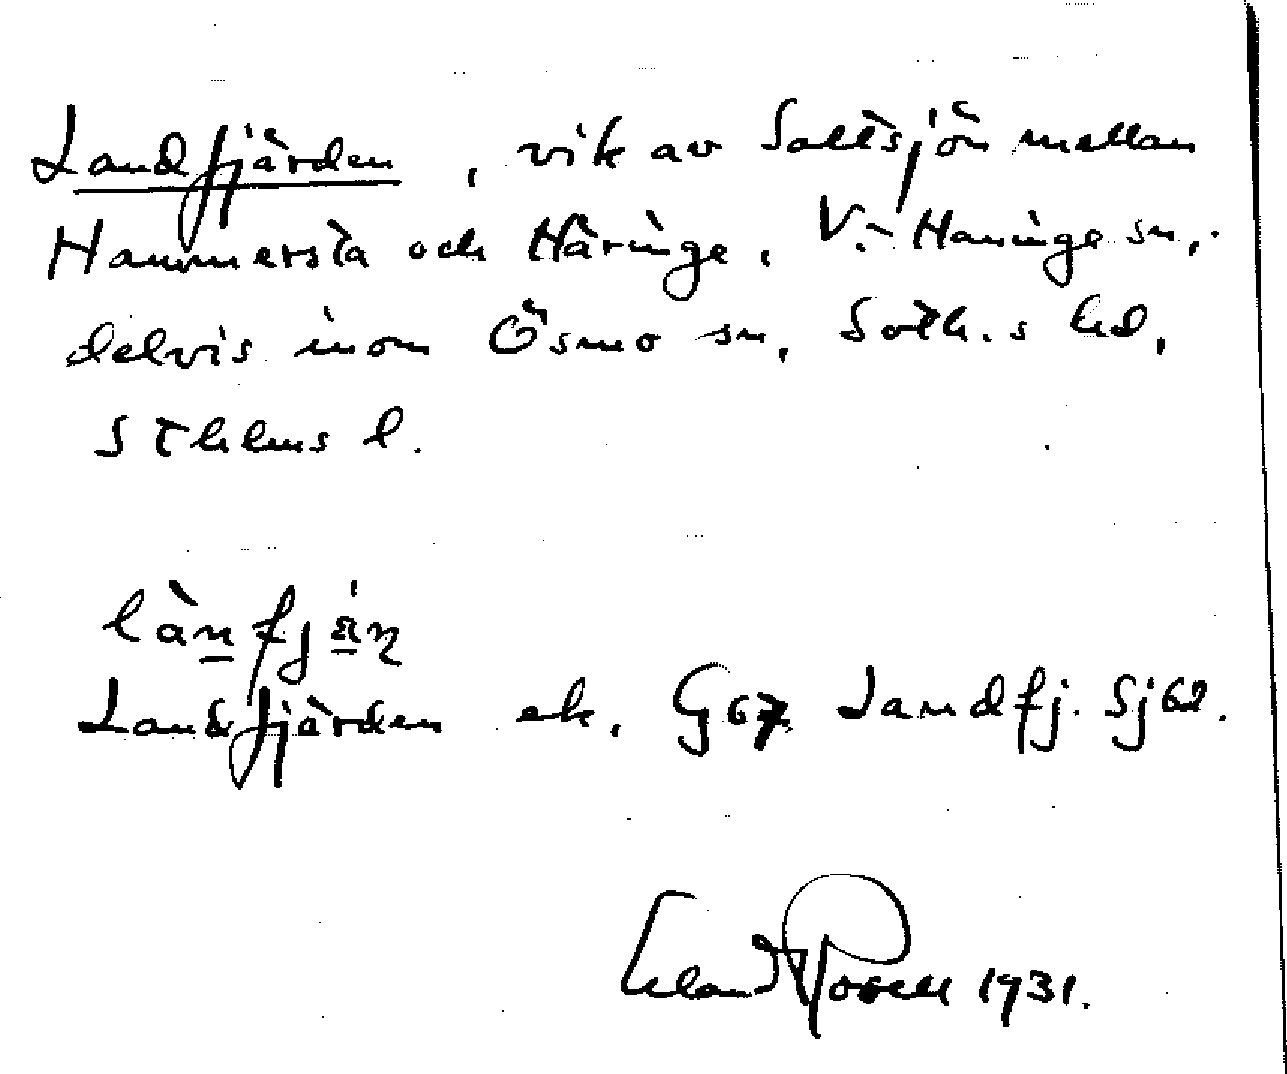 Landfjärden, vik av Saltsjön mellan
Hammersta och Häringe, V.-Haninge sn,
delvis inom Ösmo sn, Soth.s hd,
Sthlms l.
Landfjärden ek. G67 Landfj. Sj62.
Erland Rosell 1931.